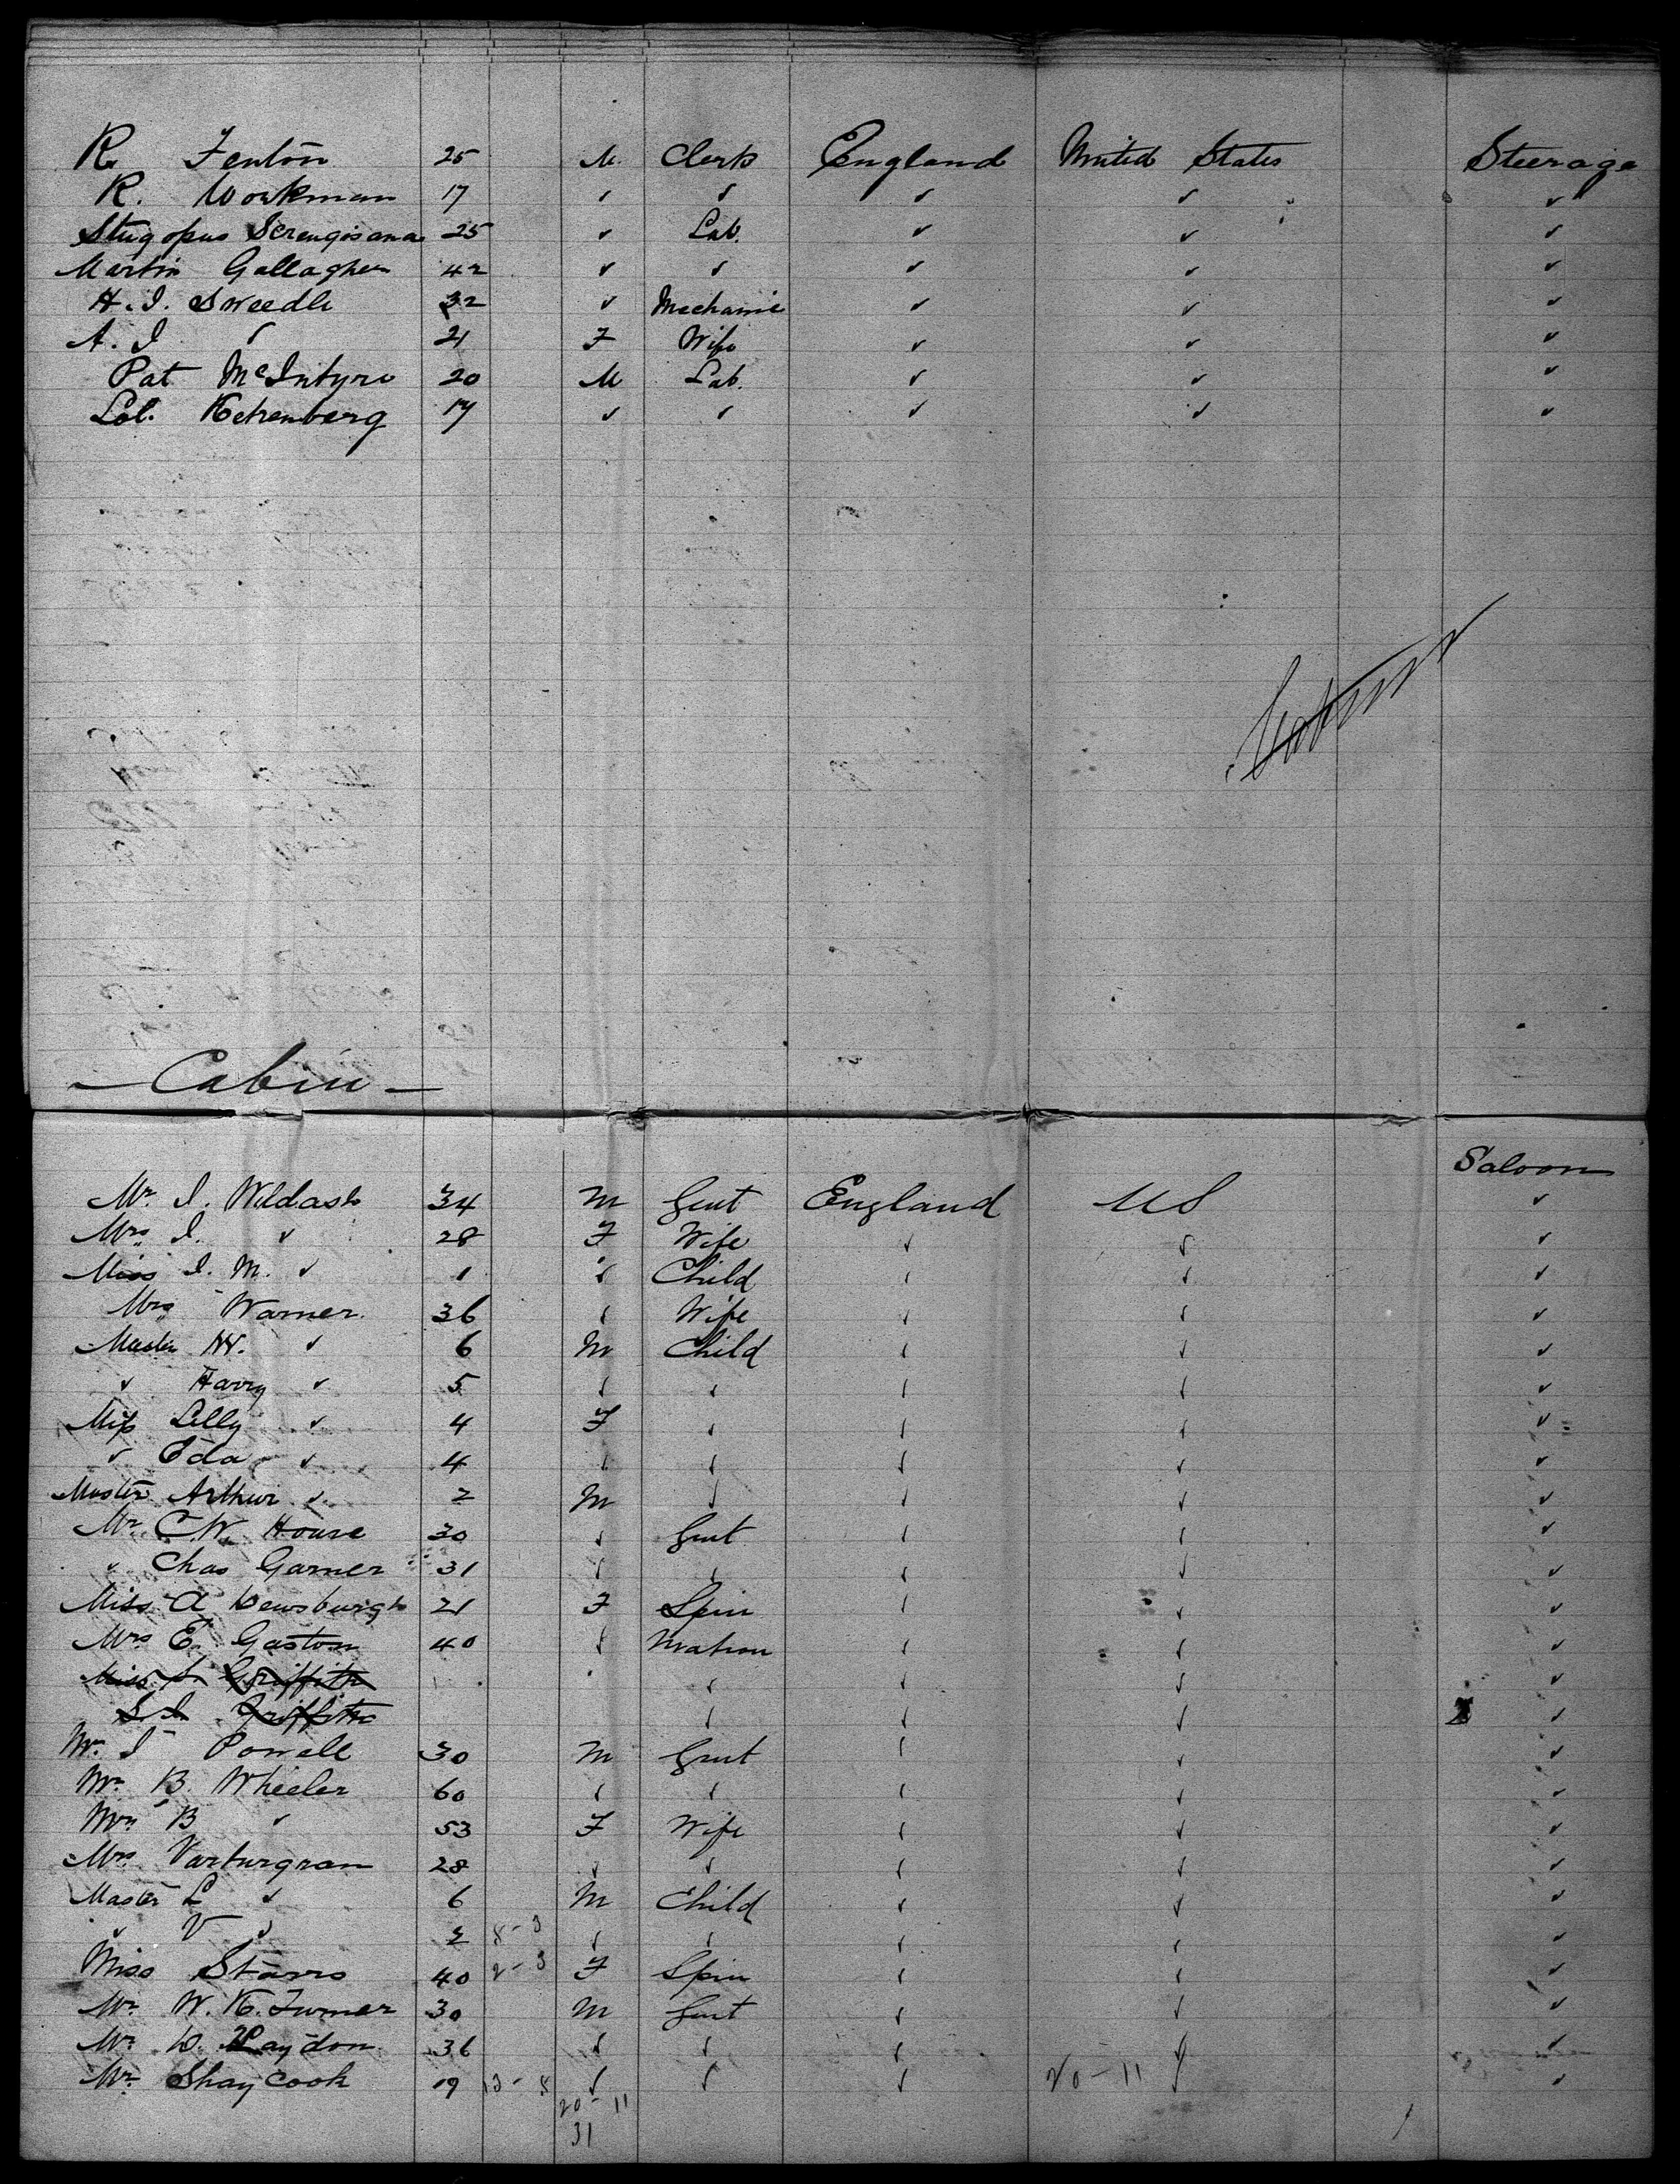 R. Fenton 25 M. Clerk England United States Steerage
R. Workman 17 ✓ ✓ ✓ ✓ ✓
25 ✓ Lab. ✓ ✓ ✓
Martin Gallagher 42 ✓ ✓ ✓ ✓ ✓
H. I. Sweedle 32 ✓ Mechanic ✓ ✓ ✓
A. I ✓ 21 F Wife ✓ ✓ ✓
Pat McIntyre 20 M Lab. ✓ ✓ ✓
17 ✓ ✓ ✓ ✓ ✓
— Cabin —
Saloon
Mr. I. Wildash 34 M Gent England US ✓
Mrs I. ✓ 28 F Wife ✓ ✓ ✓
Miss I. M. ✓ 1 ✓ Child ✓ ✓ ✓
Mrs Warner 36 ✓ Wife ✓ ✓ ✓
Master W. ✓ 6 M Child ✓ ✓ ✓
✓ Harry ✓ 5 ✓ ✓ ✓ ✓ ✓
Miss Lilly ✓ 4 F ✓ ✓ ✓ ✓
✓ Eda ✓ 4 ✓ ✓ ✓ ✓ ✓
Master Arthur ✓ 2 M ✓ ✓ ✓ ✓
Mr C W. House 30 ✓ Gent ✓ ✓ ✓
✓ Chas Garner 31 ✓ ✓ ✓ ✓ ✓
Miss A Dewsburgh 21 F Spin ✓ ✓ ✓
Mrs E. Gaston 40 ✓ Matron ✓ ✓ ✓
Miss S. Griffith ✓ ✓ ✓ ✓
S I. Griffith ✓ ✓ ✓ ✓
Mr. I Powell 30 M Gent ✓ ✓ ✓
Mr. B. Wheeler 60 ✓ ✓ ✓ ✓ ✓
Mrs B ✓ 53 F Wife ✓ ✓ ✓
Mrs. Varturgran 28 ✓ ✓ ✓ ✓ ✓
Master L ✓ 6 M Child ✓ ✓ ✓
✓ V ✓ 2 8-3 ✓ ✓ ✓ ✓ ✓
Miss Starrs 40 2-3 F Spin ✓ ✓ ✓
Mr. W. K. Turner 30 M Gent ✓ ✓ ✓
Mr. D. Haydon 36 ✓ ✓ ✓ ✓ ✓
Mr. Shaycook 19 13-8 ✓ ✓ ✓ 20-11 ✓ ✓
20-11
31